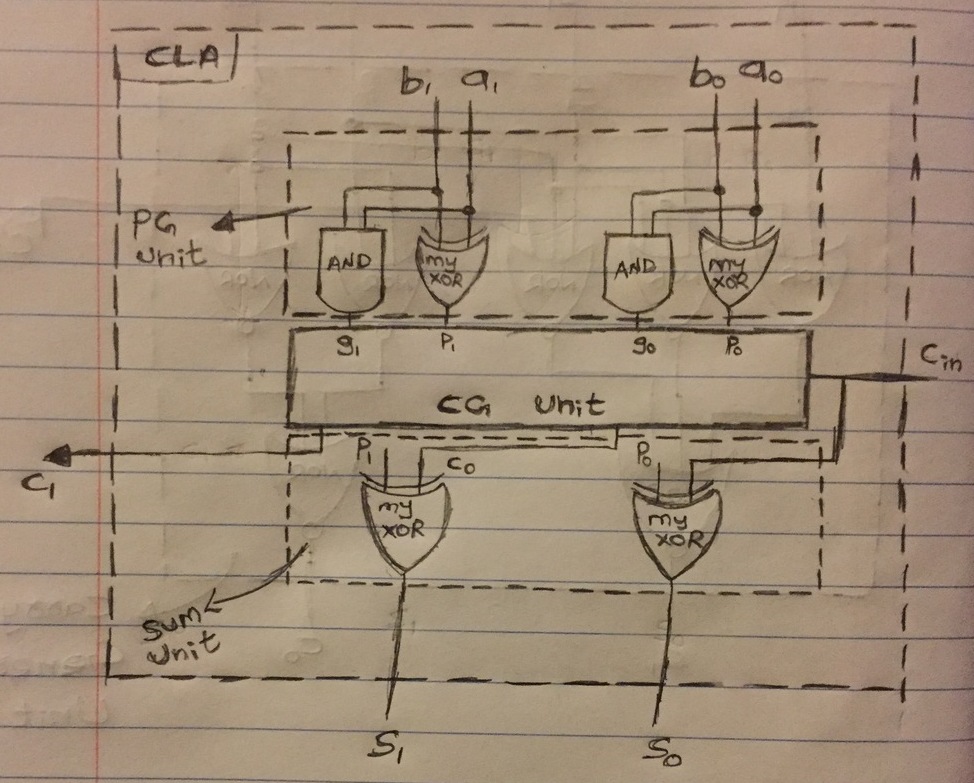 CLA
b₁ a₁ b₀ a₀
PG
unit
AND
my
XOR
AND
my
XOR
g₁ P₁ g₀ P₀
Cin
CG Unit
C₁
P₁ C₀ P₀
my
XOR
my
XOR
Sum
Unit
S₁ S₀